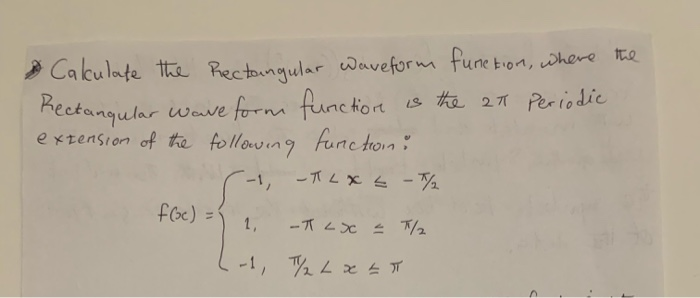 Calculate the Rectangular waveform function, where the
Rectangular wave form function is the 2π Periodic
extension of the following function:
f(x) = { -1, -π < x ≤ -π/2
1, -π < x ≤ π/2
-1, π/2 < x ≤ π